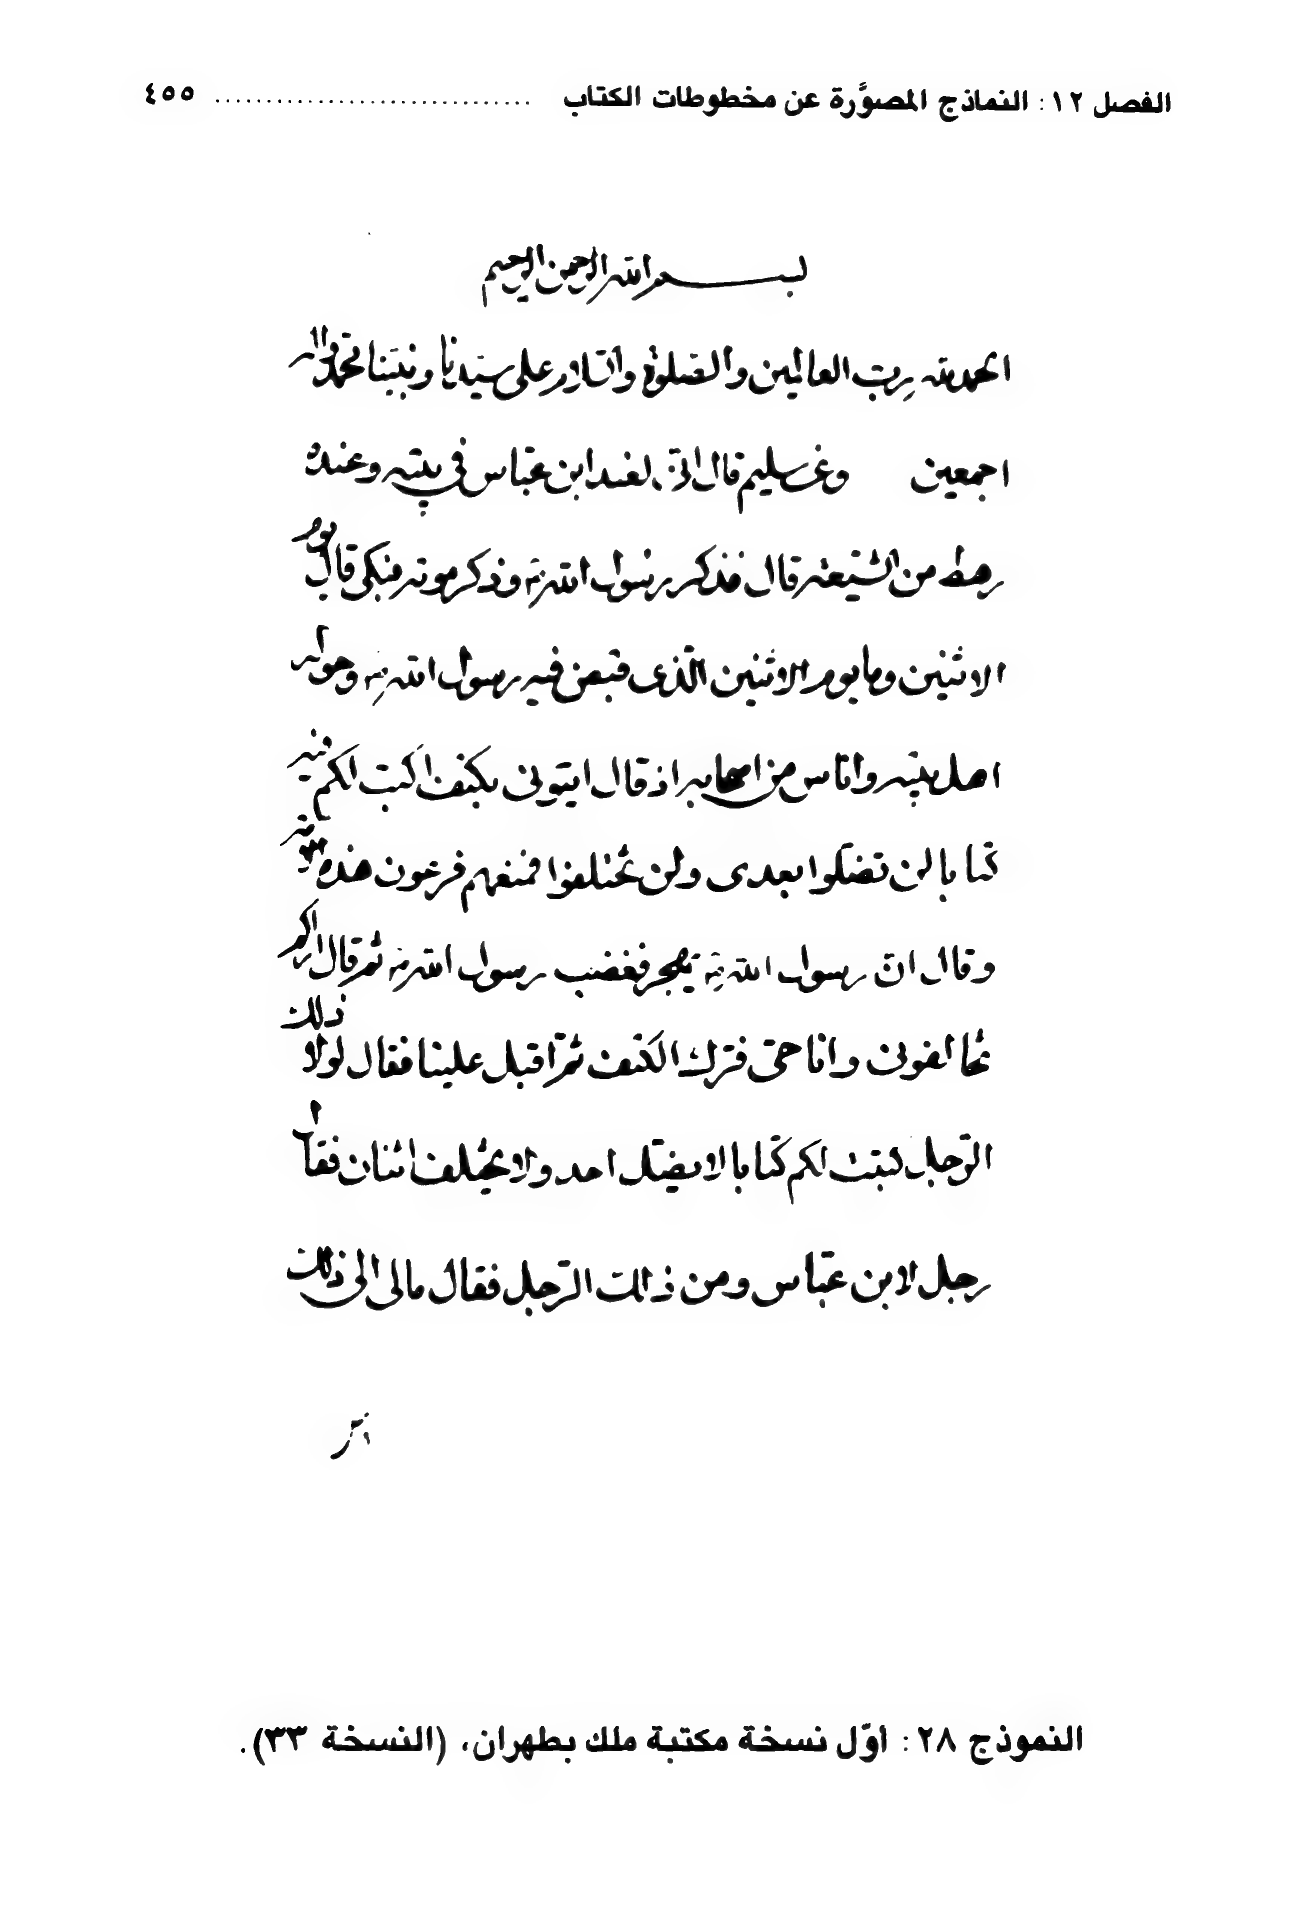 الفصل ١٢: النماذج المصوَّرة عن مخطوطات الكتاب .............................. ٤٥٥
بسم الله الرحمن الرحيم
الحمد لله رب العالمين والصلوة والسلام على سيدنا ونبينا محمد واله
اجمعين وعن سليم قال انى لعند ابن عباس في بيته وعنده
رهط من الشيعة قال فذكر رسول الله ص وذكر موته فبكى قال يوم
الاثنين وما يوم الاثنين الذى قبض فيه رسول الله ص وحوله
اهل بيته واناس من اصحابه اذ قال ايتونى بكتف اكتب لكم فيه
كتابا لن تضلوا بعدى ولن تختلفوا فمنعهم فرعون هذه
وقال ان رسول الله ص يهجر فغضب رسول الله ص ثم قال اراكم
تخالفونى وانا حى فترك الكتف ثم اقبل علينا فقال لولا ذلك
الرجل لكتبت لكم كتابا لا يضل احد ولا يختلف اثنان فقال
رجل لابن عباس ومن ذلك الرجل فقال مالى الى ذلك
النموذج ٢٨: اوّل نسخة مكتبة ملك بطهران، (النسخة ٣٣).